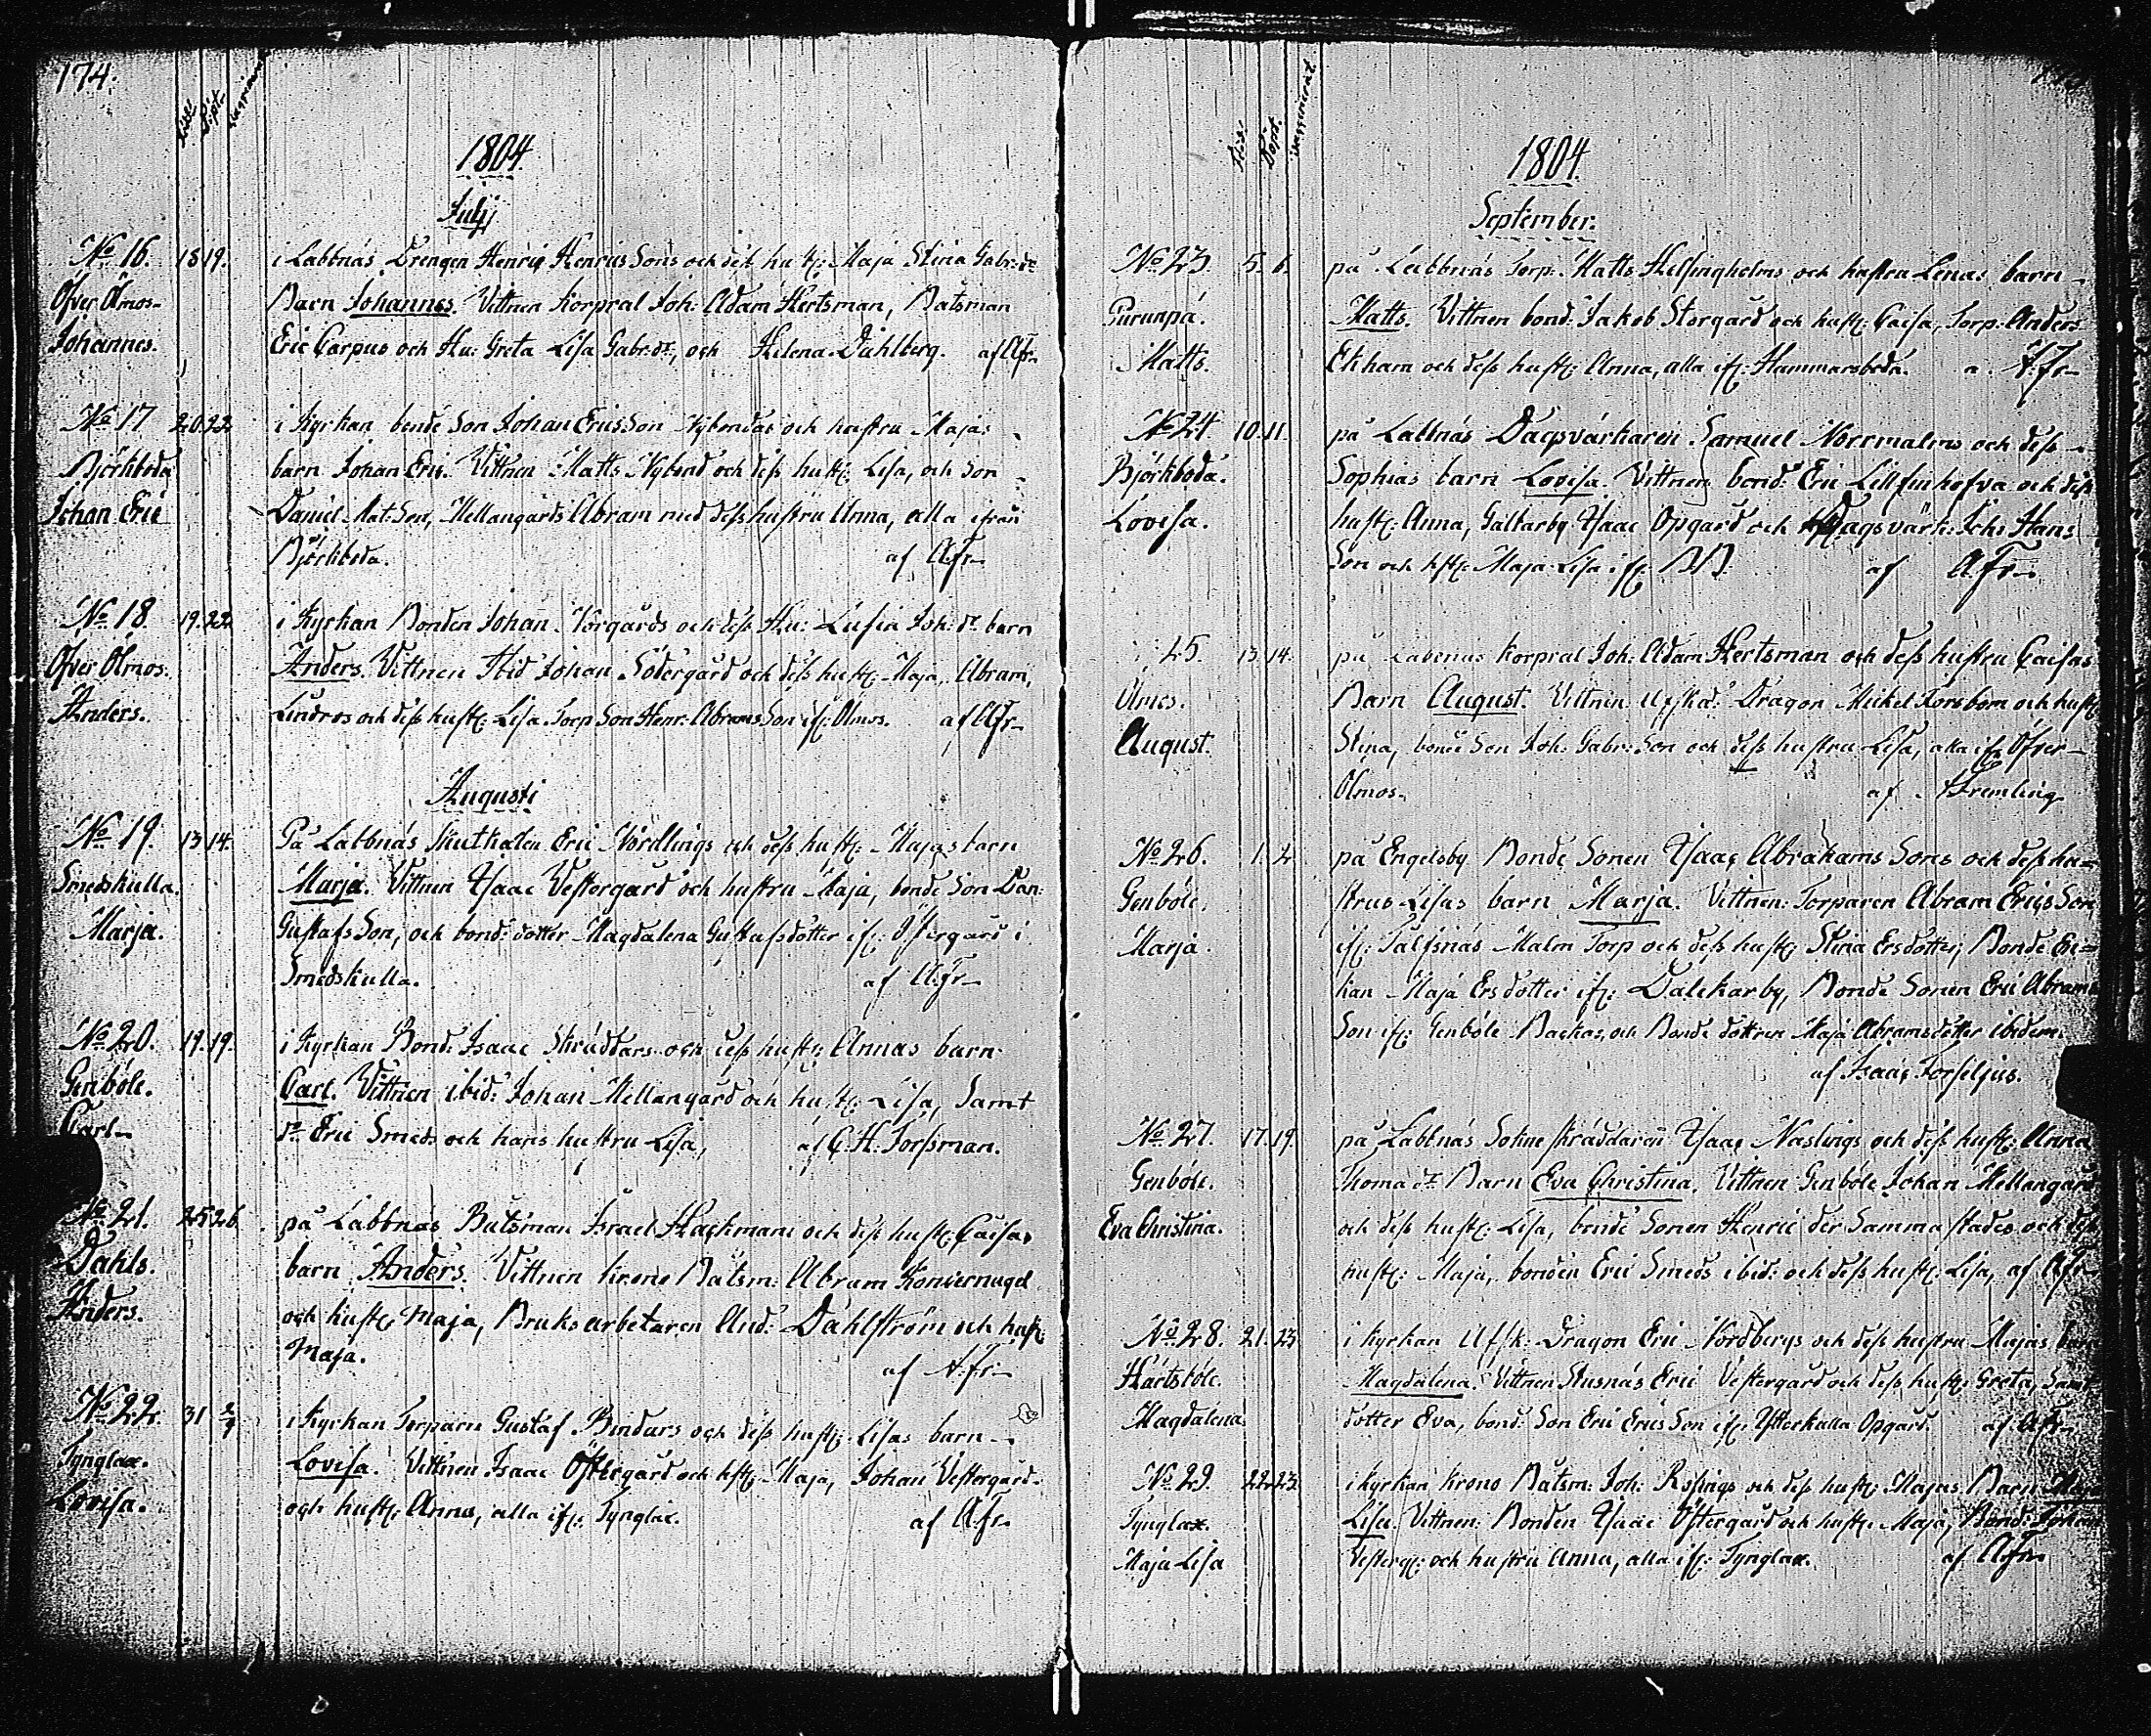 174.
född döpt
1804.
Julij
No 16. 18 19. i Labbnäs Drengen Henric Henricssons och dess hust: Maja Stina Gabr:dr
Öfver Ölmos. Barn Johannes. Vittnen Korpral Joh: Adam Hertsman, Båtsman
Johannes. Eric Carpus och Hu: Greta Lisa Gabr:dr, och Helena Dahlberg. af AFr
No 17 20. 22 i Kyrkan bonde Son Johan EricsSon Nybondas och hustru Majas
Björkboda barn Johan Eric. Vittnen Matts Nybond och dess hust: Lisa, och Son
Johan Eric Daniel Mat:Son, Mellangårds Abram med dess hustru Anna, alla ifrån
Björkboda. af A.Fr
No 18 19. 22 i Kyrkan Bonden Johan Norgårds och dess Hu: Lusia Joh:dr barn
Öfver Ölmos. Anders. Vittnen Ibid Johan Södergård och dess hust: Maja, Abram
Anders. Lindros och dess hust: Lisa. Torp Son Henr: AbramsSon if: Ölmos. af AFr
Augusti
No 19. 13 14. På Labbnäs Skutkalen Eric Nordlings och dess hust: Majas barn
Smedskulla. Marja. Vittnen Isaac Vestergård och hustru Maja, bonde Son Dan:
Marja. GustafsSon, och bond: dotter Magdalena Gustafsdotter if: Östergård i
Smedskulla. af A.Fr
No 20. 19. 19. i Kyrkan Bond: Isaac Skräddars och dess hust: Annas barn
Genböle. Carl. Vittnen ibid: Johan Mellangård och hust: Lisa, Samt
Carl dr Eric Smeds och hans hustru Lisa, af C. H. Forssman.
No 21. 25 26 på Labbnäs Båtsman Israel Hackmans och dess hust: Caisas
Dahls. barn Anders. Vittnen Krono Båtsm: Abram
Anders. och hust: Maja, Bruksarbetaren And: Dahlström och hust:
Maja. af A.Fr
No 22. 31 2/9 i Kyrkan Torparn Gustaf Bindars och dess hust: Lisas barn
Tynglax. Lovisa. Vittnen Isaac Östergård och hst: Maja, Johan Vestergård
Lovisa. och hust: Anna, alla if: Tynglax. af A.Fr
född. Döpt.
1804.
September.
No 23. 5. 6. på Labbnäs Torp: Matts Helsingholms och hustru Lenas barn
Purunpä. Matts. Vittnen bond: Jakob Storgård och hust: Caisa, Torp: Anders
Matts. Ekham och dess hust: Anna, alla if: Hammarsboda. a A:Fr
No 24. 10. 11. på Labbnäs Dagsvärkaren Samuel Norrmalms och dess
Björkboda. Sophias barn Lovisa. Vittnen bond: Eric Lillfinhofva och dess
Lovisa. hust: Anna, Galtarby Isaac Opgård och Dagsvärk: Joh: Hans
Son och hst: Maja Lisa if: BB. af A.Fr
25. 13. 14. på Labbnäs Korpral Joh: Adam Hertsman och dess hustru Caisas
Ölmos. Barn August. Vittnen Afsked: Dragon Mickel Forsbom och hust:
August. Stina, bonde Son Joh: Gabr:Son och dess hustru Lisa, alla if: Öfver
Ölmos. af Fremling
No 26. 1. 2 på Engelsby Bonde Sonen Isaac Abrahams Sons och dess hu=
Genböle. strus Lisas barn Marja. Vittnen: Torparen Abram EricsSon
Marja. if: Tälssnäs Malm Torp och dess hust: Stina Ersdotter, Bonde En=
kan Maja Ersdotter if: Dalckarby, Bonde Sonen Eric Abrams
Son if: Genböle Backas, och Bonde dottren Maja Abramsdotter ibidem.
af Isaac Forselius.
No 27. 17. 19. på Labbnäs Sokneskräddaren Isaac Naslings och dess hust: Anna
Genböle. Thoma dr Barn Eva Christina. Vittnen Genböle Johan Mellangård
Eva Christina. och dess hust: Lisa, bonde Sonen Henric der Sammastades och dess
hust: Maja, bonden Eric Smeds ibid: och dess hust: Lisa, af AFr
No 28. 21. 23 i Kyrkan Afsk: Dragon Eric Nordbergs och dess hustru Majas barn
Hertsböle. Magdalena. Vittnen Stusnäs Eric Vestergård och dess hust: Greta, Samt
Magdalena. dotter Eva, bond: Son Eric EricsSon if: Ytterkulla Opgård. af AFr
No 29. 22. 23. i Kyrkan Krono Båtsm: Joh: Rossings och dess hust: Majas Barn Maja
Tynglax. Lisa. Vittnen: Bonden Isaac Östergård och hust: Maja, Bond: Johan
Maja Lisa Vesterg: och hustru Anna, alla if: Tynglax. af A.Fr